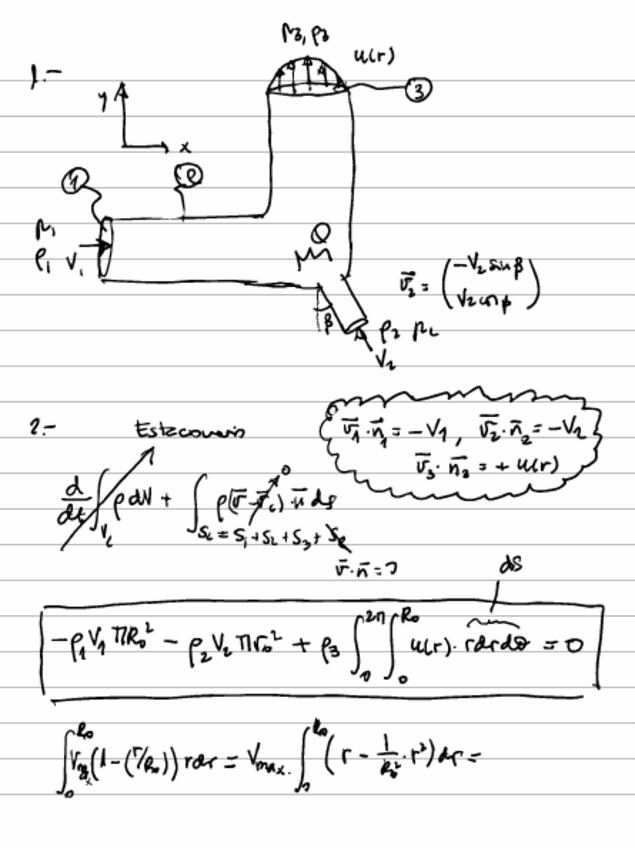 p₃, ρ₃
u(r)
1.-
3
y
x
1
p₁
ρ₁ V₁
Q
β
ρ₂ p₂
V₂
v̄₂ = (-V₂ sin β
V₂ cos β)
2.-
Estacionario
v̄₁·n̄₁ = -V₁, v̄₂·n̄₂ = -V₂
v̄₃·n̄₃ = + u(r)
d/dt ∫_Vc ρ dV + ∫_{Sc = S₁+S₂+S₃+Sₗ} ρ(v̄ - v̄c)·n̄ ds
0
v̄·n̄ = 0
ds
-ρ₁ V₁ π R₀² - ρ₂ V₂ π r₀² + ρ₃ ∫₀^{2π} ∫₀^{R₀} u(r)· r dr dθ = 0
∫₀^{R₀} V_max (1-(r/R₀)) r dr = V_max. ∫₀^{R₀} (r - 1/R₀² · r²) dr =